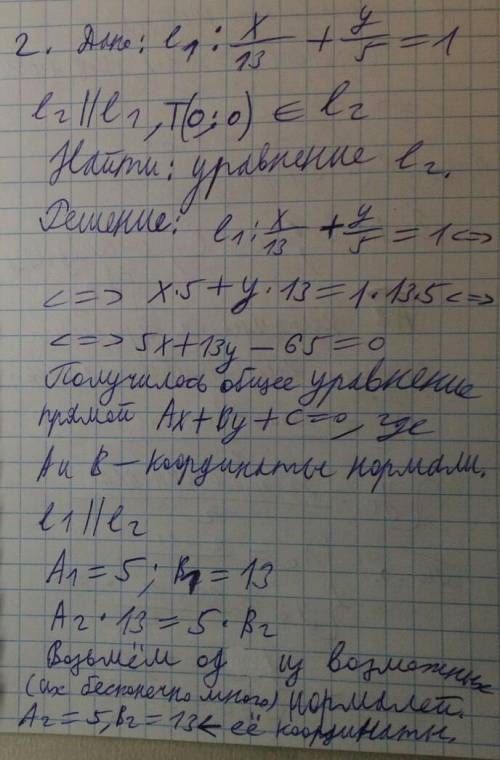 2. Дано: l1: x/13 + y/5 = 1
l2 || l1, T(0;0) ∈ l2
Найти: уравнение l2.
Решение: l1: x/13 + y/5 = 1 <=>
<=> x·5 + y·13 = 1·13·5 <=>
<=> 5x+13y − 65 = 0
Получилось общее уравнение
прямой Ax+By+C=0, где
A и B – координаты нормали.
l1 || l2
A1 = 5; B1 = 13
A2·13 = 5·B2
Возьмём из возможных
(их бесконечно много) нормалей.
A2 = 5, B2 = 13 ← её координаты.